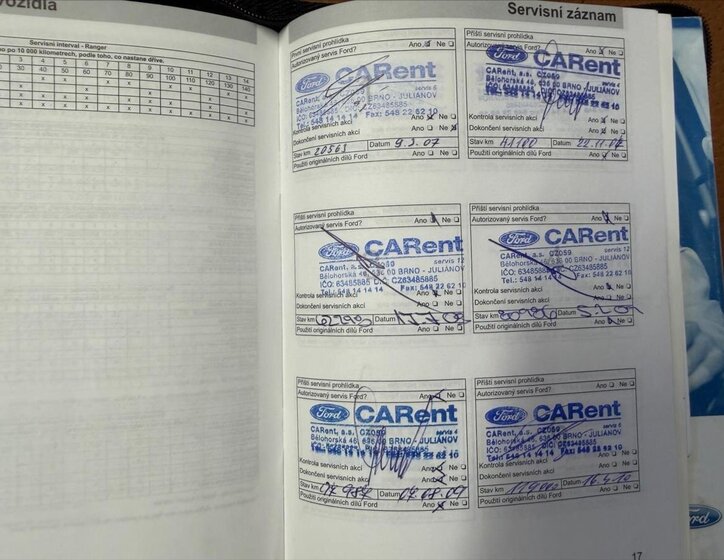 vozidla
Servisní interval - Ranger
po 10 000 kilometrech, podle toho, co nastane dříve.
3 4 5 6 7 8 9 10 11 12 13 14
30 40 50 60 70 80 90 100 110 120 130 140
Servisní záznam
První servisní prohlídka
Autorizovaný servis Ford? Ano Ne
Ford CARent
CARent, a.s. CZ059
servis 4
BRNO - JULIÁNOV
IČO: 63485885
Tel.: 548 14 14 14 Fax: 548 22 62 10
Kontrola servisních akcí Ano Ne
Dokončení servisních akcí Ano Ne
Stav km 20563 Datum 9.3.07
Použití originálních dílů Ford Ano Ne
Příští servisní prohlídka
Autorizovaný servis Ford? Ano Ne
Ford CARent
CARent, a.s. CZ059
Bělohorská 46, 636 00 BRNO - JULIÁNOV
Kontrola servisních akcí Ano Ne
Dokončení servisních akcí Ano Ne
Stav km 41100 Datum 22.11.07
Použití originálních dílů Ford Ano Ne
Příští servisní prohlídka
Autorizovaný servis Ford? Ano Ne
Ford CARent
CARent, a.s. CZ059 servis 12
Bělohorská 46, 636 00 BRNO - JULIÁNOV
IČO: 63485885 DIČ: CZ63485885
Tel.: 548 14 14 14 Fax: 548 22 62 10
Kontrola servisních akcí Ano Ne
Dokončení servisních akcí Ano Ne
Stav km Datum
Použití originálních dílů Ford Ano Ne
Příští servisní prohlídka
Autorizovaný servis Ford? Ano Ne
Ford CARent
CARent, a.s. CZ059 servis 12
Bělohorská 46, 636 00 BRNO - JULIÁNOV
IČO: 63485885 DIČ: CZ63485885
Tel.: 548 14 14 14 Fax: 548 22 62 10
Kontrola servisních akcí Ano Ne
Dokončení servisních akcí Ano Ne
Stav km Datum
Použití originálních dílů Ford Ano Ne
Příští servisní prohlídka
Autorizovaný servis Ford? Ano Ne
Ford CARent
CARent, a.s. CZ059 servis 4
Bělohorská 46, 636 00 BRNO - JULIÁNOV
Kontrola servisních akcí Ano Ne
Dokončení servisních akcí Ano Ne
Stav km Datum 07.08.09
Použití originálních dílů Ford Ano Ne
Příští servisní prohlídka
Autorizovaný servis Ford? Ano Ne
Ford CARent
CARent, a.s. CZ059 servis 4
Bělohorská 46, 636 00 BRNO - JULIÁNOV
IČO: 63485885
Tel.: 548 14 14 14 Fax: 548 22 62 10
Kontrola servisních akcí Ano Ne
Dokončení servisních akcí Ano Ne
Stav km Datum 16.4.10
Použití originálních dílů Ford Ano Ne
17
Ford